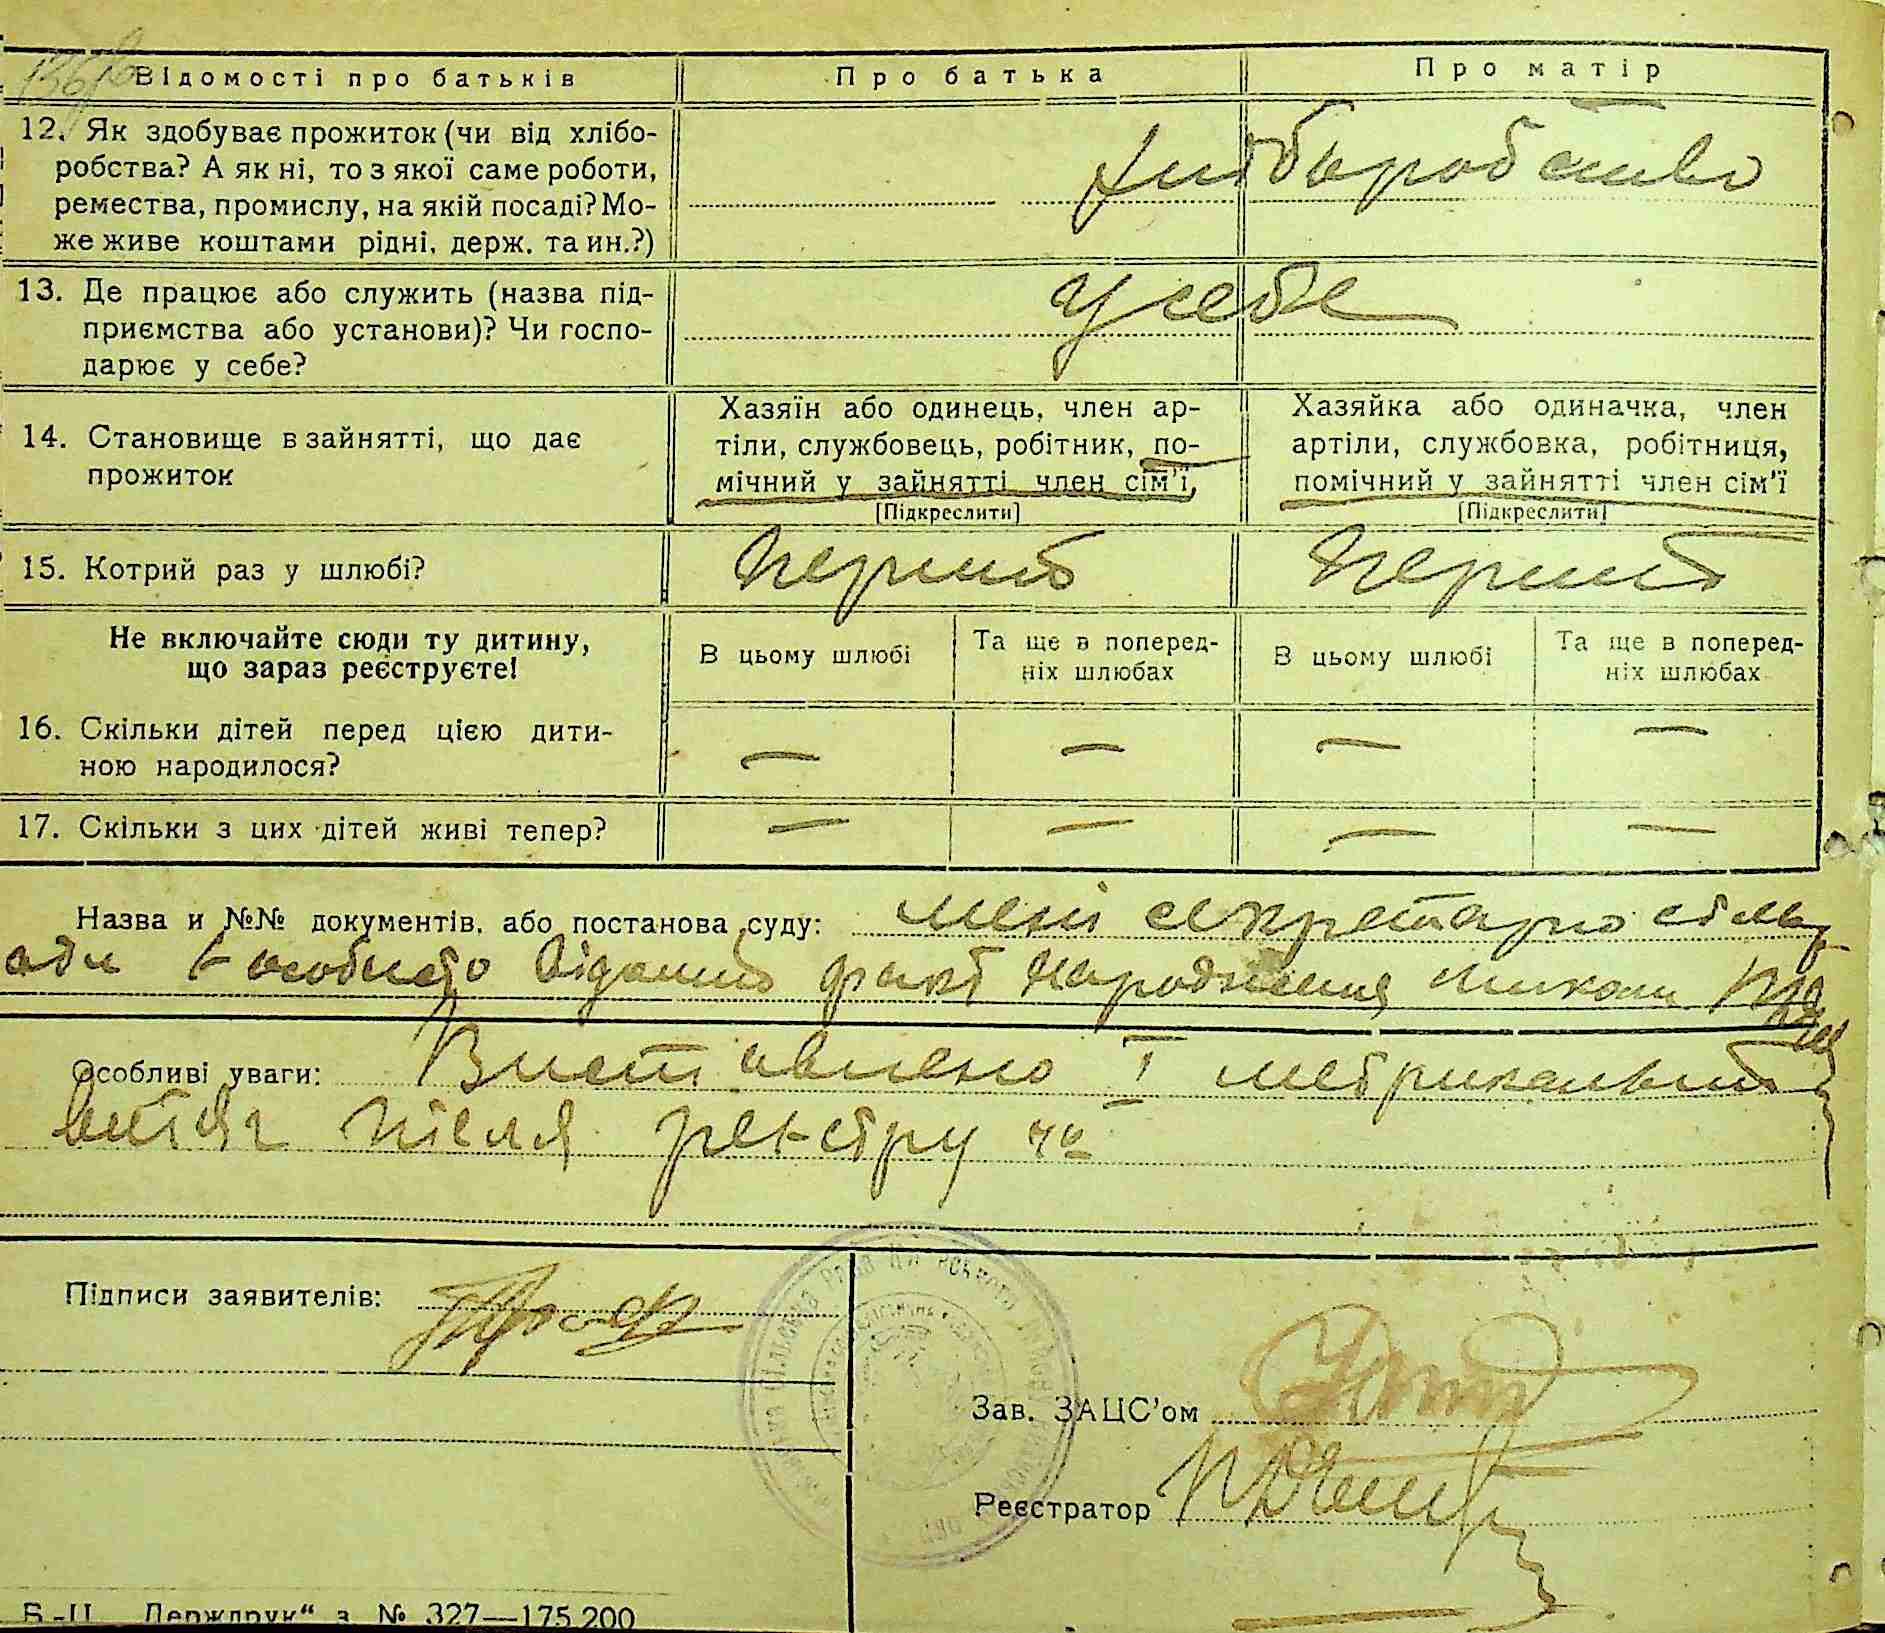 Відомості про батьків
Про батька
Про матір
12. Як здобуває прожиток (чи від хлібо-
робства? А як ні, то з якої саме роботи,
ремества, промислу, на якій посаді? Мо-
же живе коштами рідні, держ. та ин.?)
хліборобство
13. Де працює або служить (назва під-
приємства або установи)? Чи госпо-
дарює у себе?
у себе
14. Становище в зайнятті, що дає
прожиток
Хазяїн або одинець, член ар-
тіли, службовець, робітник, по-
мічний у зайнятті член сім'ї,
[Підкреслити]
Хазяйка або одиначка, член
артіли, службовка, робітниця,
помічний у зайнятті член сім'ї
[Підкреслити]
15. Котрий раз у шлюбі?
перший
перший
Не включайте сюди ту дитину,
що зараз реєструєте!
В цьому шлюбі
Та ще в поперед-
ніх шлюбах
В цьому шлюбі
Та ще в поперед-
ніх шлюбах
16. Скільки дітей перед цією дити-
ною народилося?
— — — —
17. Скільки з цих дітей живі тепер?
— — — —
Назва и №№ документів, або постанова суду: мені секретарю сільр
ади особисто відомий факт народження
Особливі уваги: Виставлено I метрикальний
витяг після реєстру №
Підписи заявителів:
Зав. ЗАЦС'ом
Реєстратор
Б.-Ц. „Держдрук“ з. № 327—175.200